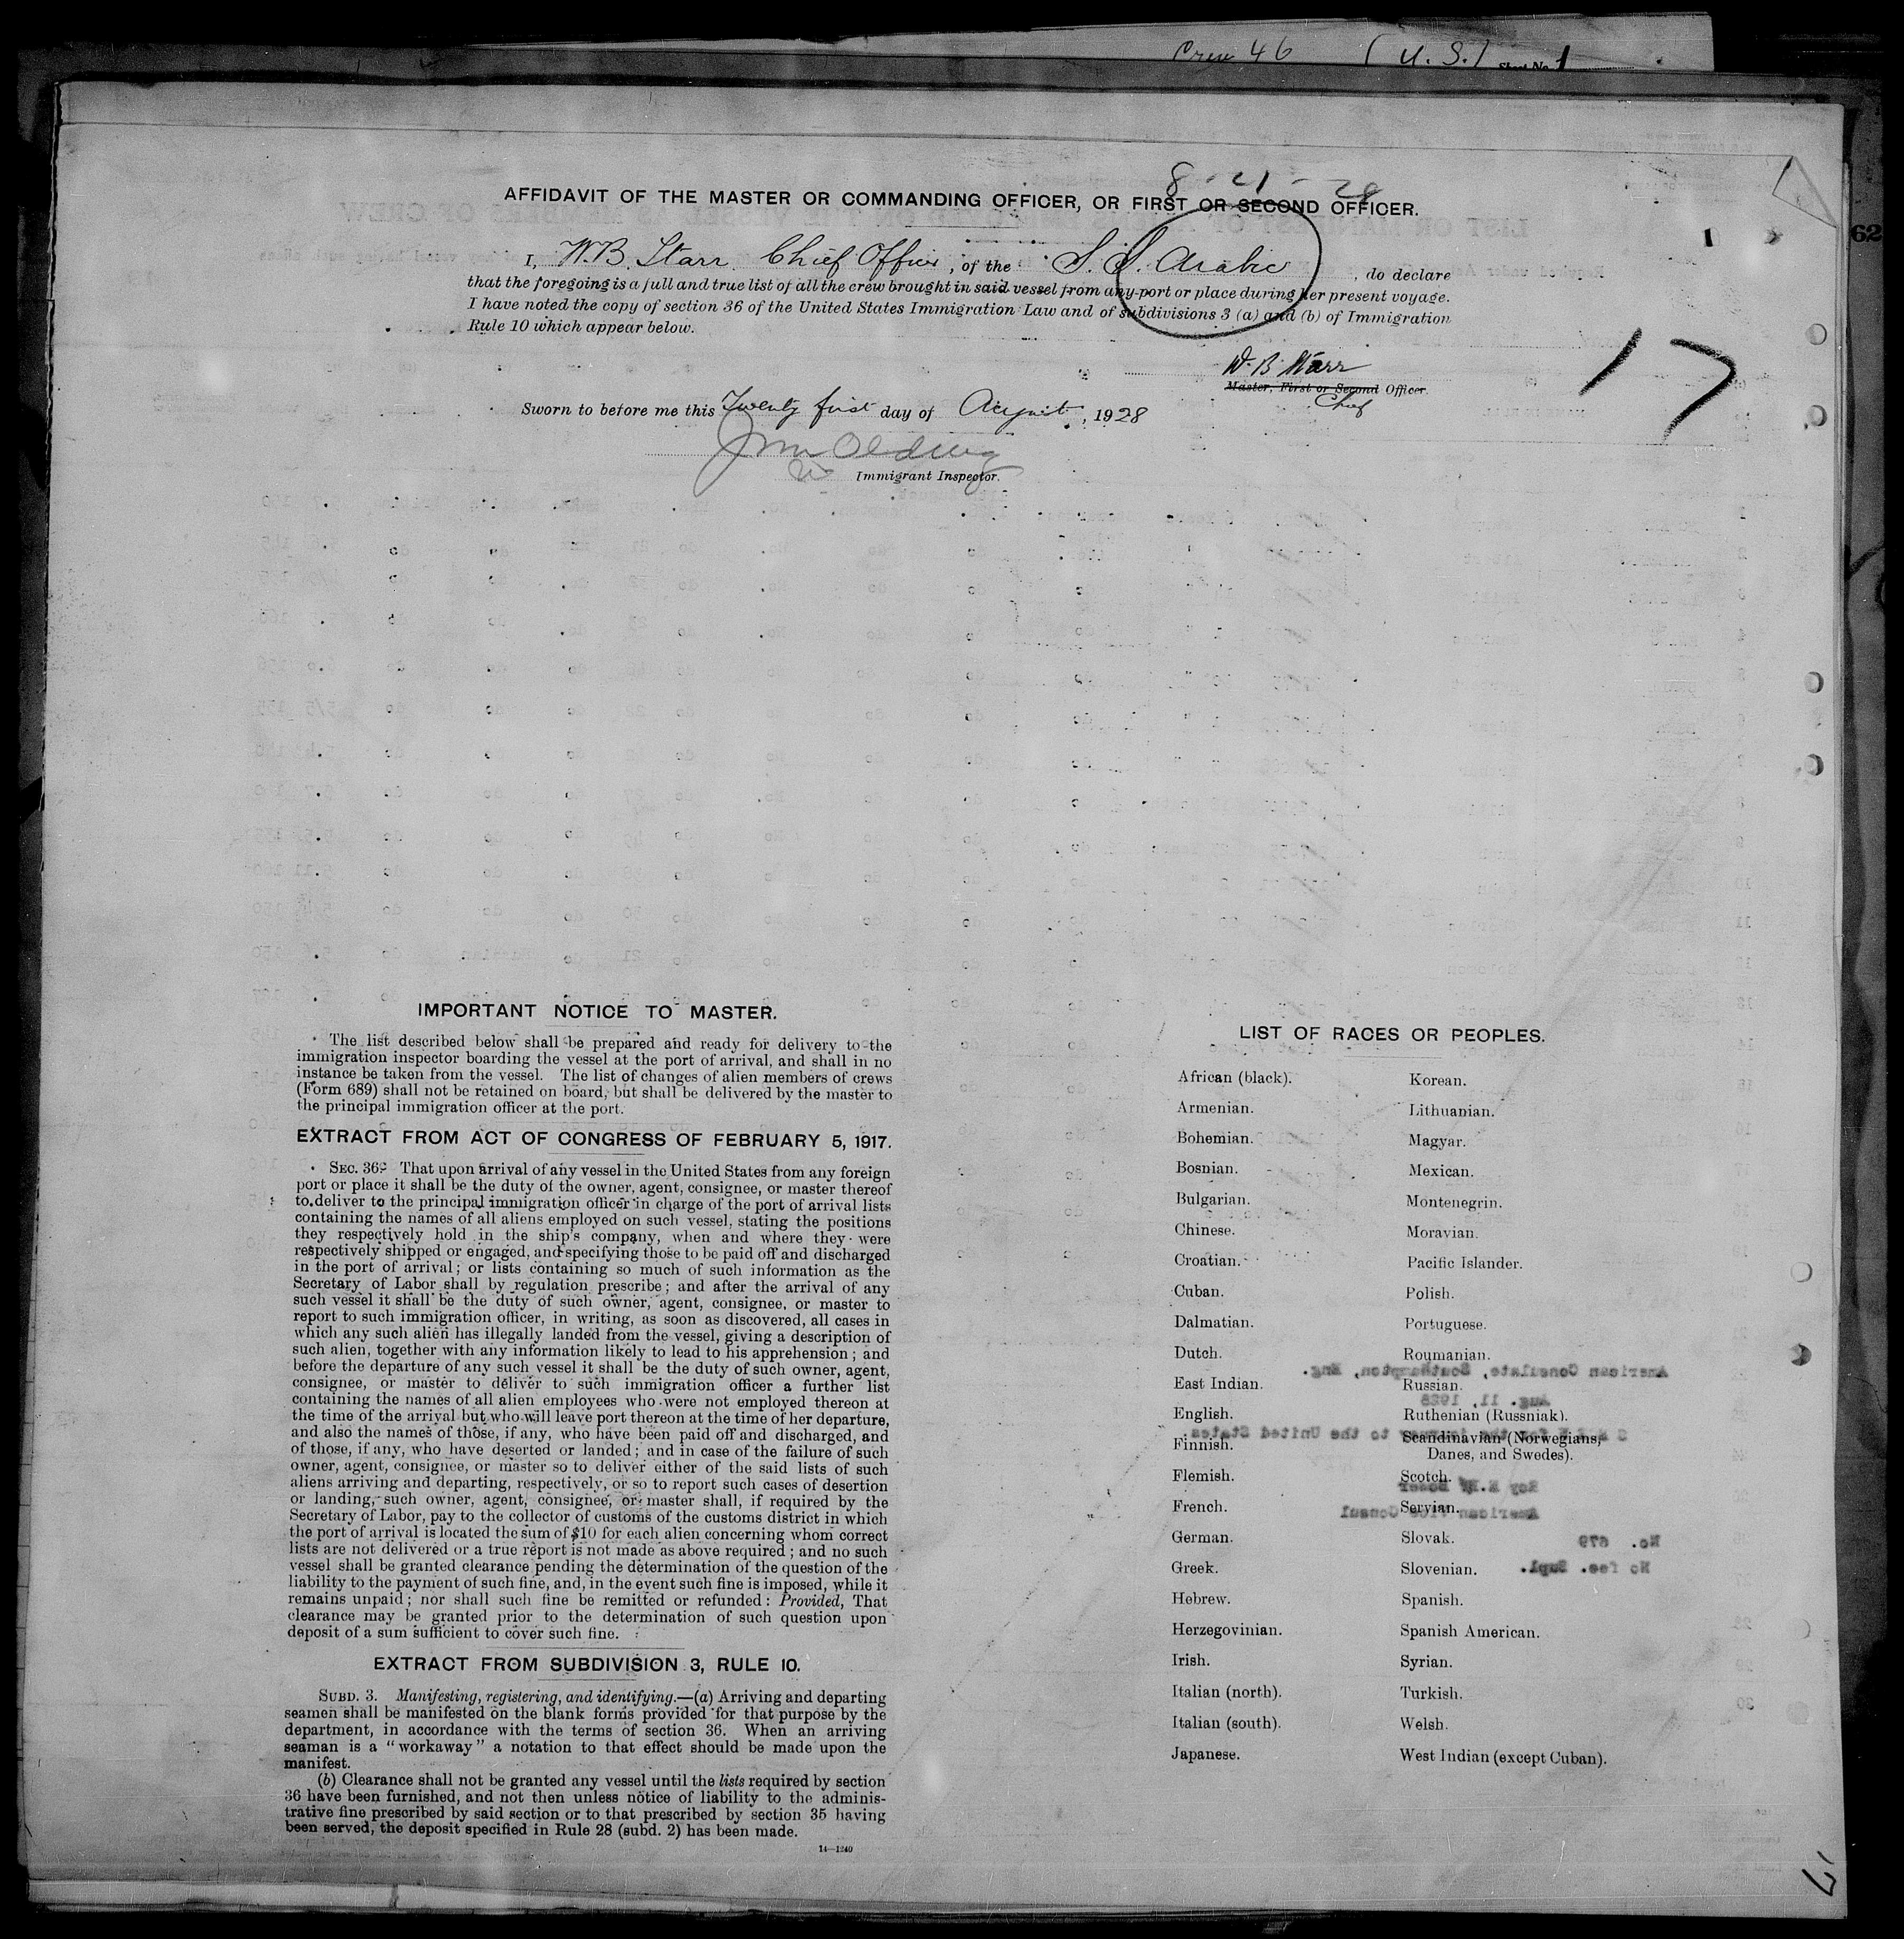 Crew 46 (U.S.) Sheet No. 1
8-21-28
AFFIDAVIT OF THE MASTER OR COMMANDING OFFICER, OR FIRST OR SECOND OFFICER.
1
62
I, W.B. Starr Chief Officer, of the S.S. Arabic, do declare
that the foregoing is a full and true list of all the crew brought in said vessel from any port or place during her present voyage.
I have noted the copy of section 36 of the United States Immigration Law and of subdivisions 3 (a) and (b) of Immigration
Rule 10 which appear below.
W.B. Starr
Master, First or Second Officer.
Chief
17
Sworn to before me this Twenty first day of August, 1928
Immigrant Inspector.
IMPORTANT NOTICE TO MASTER.
The list described below shall be prepared and ready for delivery to the
immigration inspector boarding the vessel at the port of arrival, and shall in no
instance be taken from the vessel. The list of changes of alien members of crews
(Form 689) shall not be retained on board, but shall be delivered by the master to
the principal immigration officer at the port.
EXTRACT FROM ACT OF CONGRESS OF FEBRUARY 5, 1917.
SEC. 36. That upon arrival of any vessel in the United States from any foreign
port or place it shall be the duty of the owner, agent, consignee, or master thereof
to deliver to the principal immigration officer in charge of the port of arrival lists
containing the names of all aliens employed on such vessel, stating the positions
they respectively hold in the ship's company, when and where they were
respectively shipped or engaged, and specifying those to be paid off and discharged
in the port of arrival; or lists containing so much of such information as the
Secretary of Labor shall by regulation prescribe; and after the arrival of any
such vessel it shall be the duty of such owner, agent, consignee, or master to
report to such immigration officer, in writing, as soon as discovered, all cases in
which any such alien has illegally landed from the vessel, giving a description of
such alien, together with any information likely to lead to his apprehension; and
before the departure of any such vessel it shall be the duty of such owner, agent,
consignee, or master to deliver to such immigration officer a further list
containing the names of all alien employees who were not employed thereon at
the time of the arrival but who will leave port thereon at the time of her departure,
and also the names of those, if any, who have been paid off and discharged, and
of those, if any, who have deserted or landed; and in case of the failure of such
owner, agent, consignee, or master so to deliver either of the said lists of such
aliens arriving and departing, respectively, or so to report such cases of desertion
or landing, such owner, agent, consignee, or master shall, if required by the
Secretary of Labor, pay to the collector of customs of the customs district in which
the port of arrival is located the sum of $10 for each alien concerning whom correct
lists are not delivered or a true report is not made as above required; and no such
vessel shall be granted clearance pending the determination of the question of the
liability to the payment of such fine, and, in the event such fine is imposed, while it
remains unpaid; nor shall such fine be remitted or refunded: Provided, That
clearance may be granted prior to the determination of such question upon
deposit of a sum sufficient to cover such fine.
EXTRACT FROM SUBDIVISION 3, RULE 10.
SUBD. 3. Manifesting, registering, and identifying.—(a) Arriving and departing
seamen shall be manifested on the blank forms provided for that purpose by the
department, in accordance with the terms of section 36. When an arriving
seaman is a "workaway" a notation to that effect should be made upon the
manifest.
(b) Clearance shall not be granted any vessel until the lists required by section
36 have been furnished, and not then unless notice of liability to the adminis-
trative fine prescribed by said section or to that prescribed by section 35 having
been served, the deposit specified in Rule 28 (subd. 2) has been made.
14—1240
LIST OF RACES OR PEOPLES.
African (black).
Armenian.
Bohemian.
Bosnian.
Bulgarian.
Chinese.
Croatian.
Cuban.
Dalmatian.
Dutch.
East Indian.
English.
Finnish.
Flemish.
French.
German.
Greek.
Hebrew.
Herzegovinian.
Irish.
Italian (north).
Italian (south).
Japanese.
Korean.
Lithuanian.
Magyar.
Mexican.
Montenegrin.
Moravian.
Pacific Islander.
Polish.
Portuguese.
Roumanian.
Russian.
Ruthenian (Russniak).
Scandinavian (Norwegians,
Danes, and Swedes).
Scotch.
Servian.
Slovak.
Slovenian.
Spanish.
Spanish American.
Syrian.
Turkish.
Welsh.
West Indian (except Cuban).
American Consulate, Southampton, Eng.
Aug. 11, 1928
to the United States
American Vice Consul
No. 679
No fee. Supl.
17